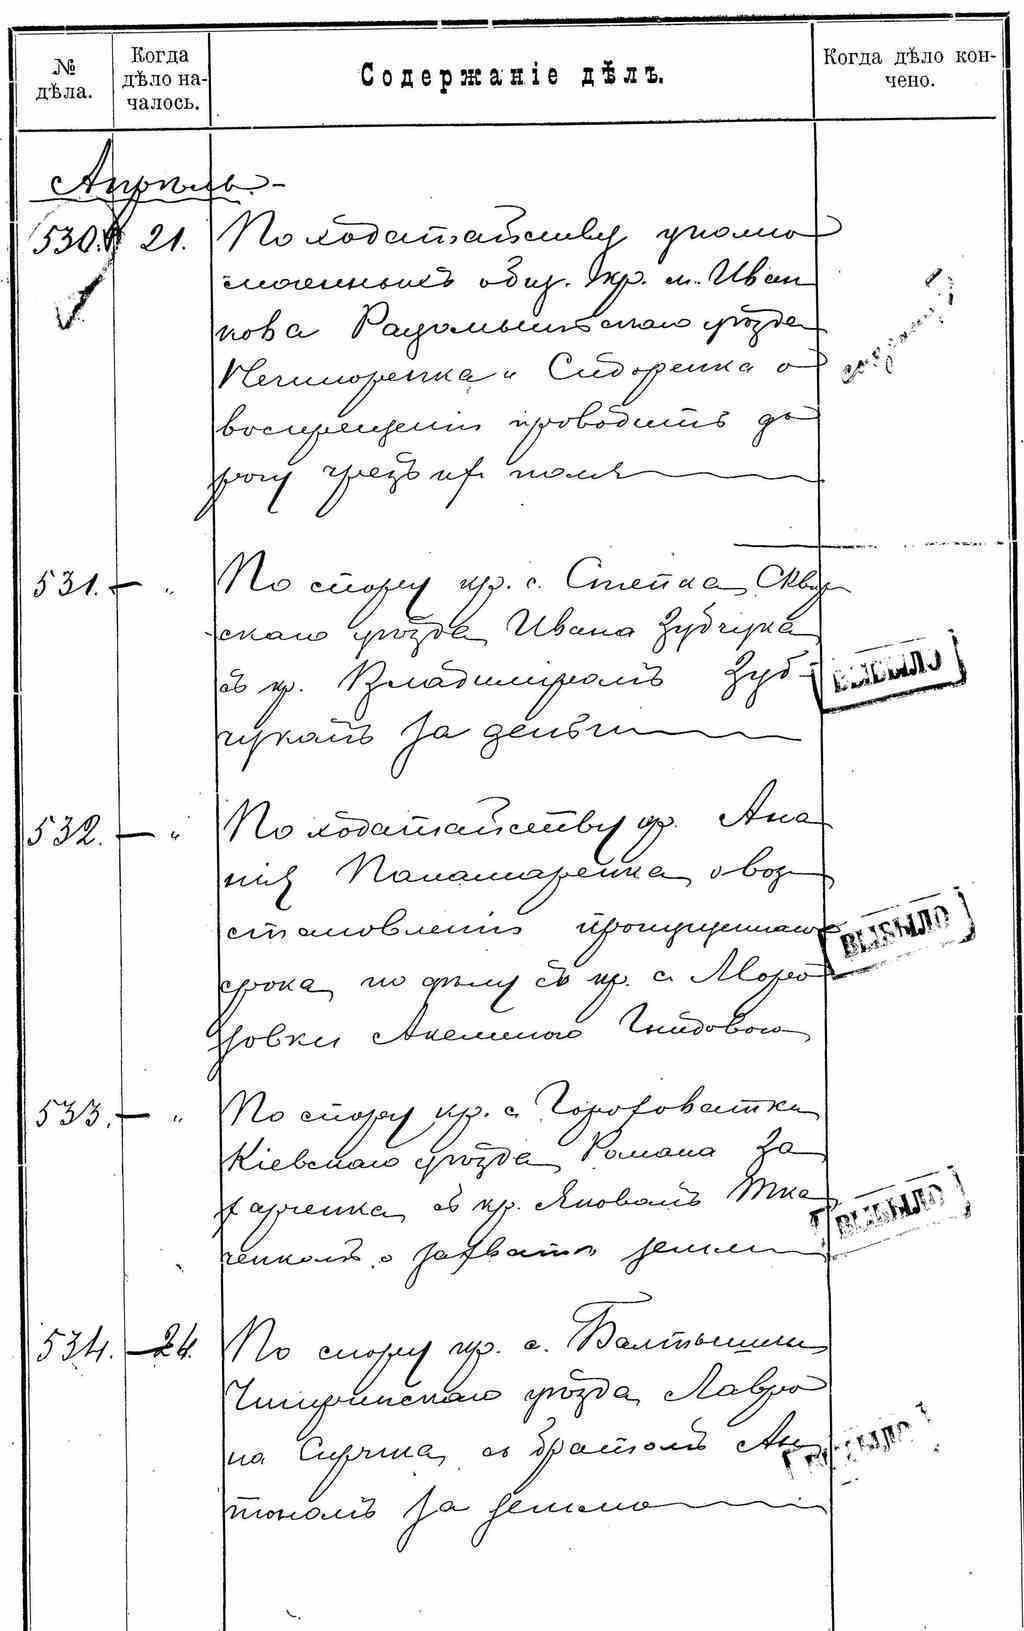 № дѣла.
Когда дѣло на-
чалось.
Содержаніе дѣлъ.
Когда дѣло кон-
чено.
Апрѣль.
530. 21. По ходатайству уполно
моченныхъ общ. кр. м. Иван
кова Радомысльскаго уѣзда
и Сидоренка о
воспрещеніи проводить до
рогу чрезъ их поля
531. — " По спору кр. с. Степка, Сквир
скаго уѣзда Ивана Зубчука
съ кр. Владиміромъ Зуб-
чукомъ за деньги
ВЫБЫЛО
532. — " По ходатайству кр. Ана
нія Паламаренка о воз
становленіи пропущеннаго
срока по дѣлу съ кр. с. Моро
зовки Гнидовою
ВЫБЫЛО
533. — " По спору кр. с. Гороховатки
Кіевскаго уѣзда Романа За
харченка съ кр. Яковомъ Тка
ченкомъ о захватѣ земли
ВЫБЫЛО
534. — 24. По спору кр. с. Балтышки
Чигиринскаго уѣзда Лавро
на съ братомъ Ан
тономъ за землю
ВЫБЫЛО